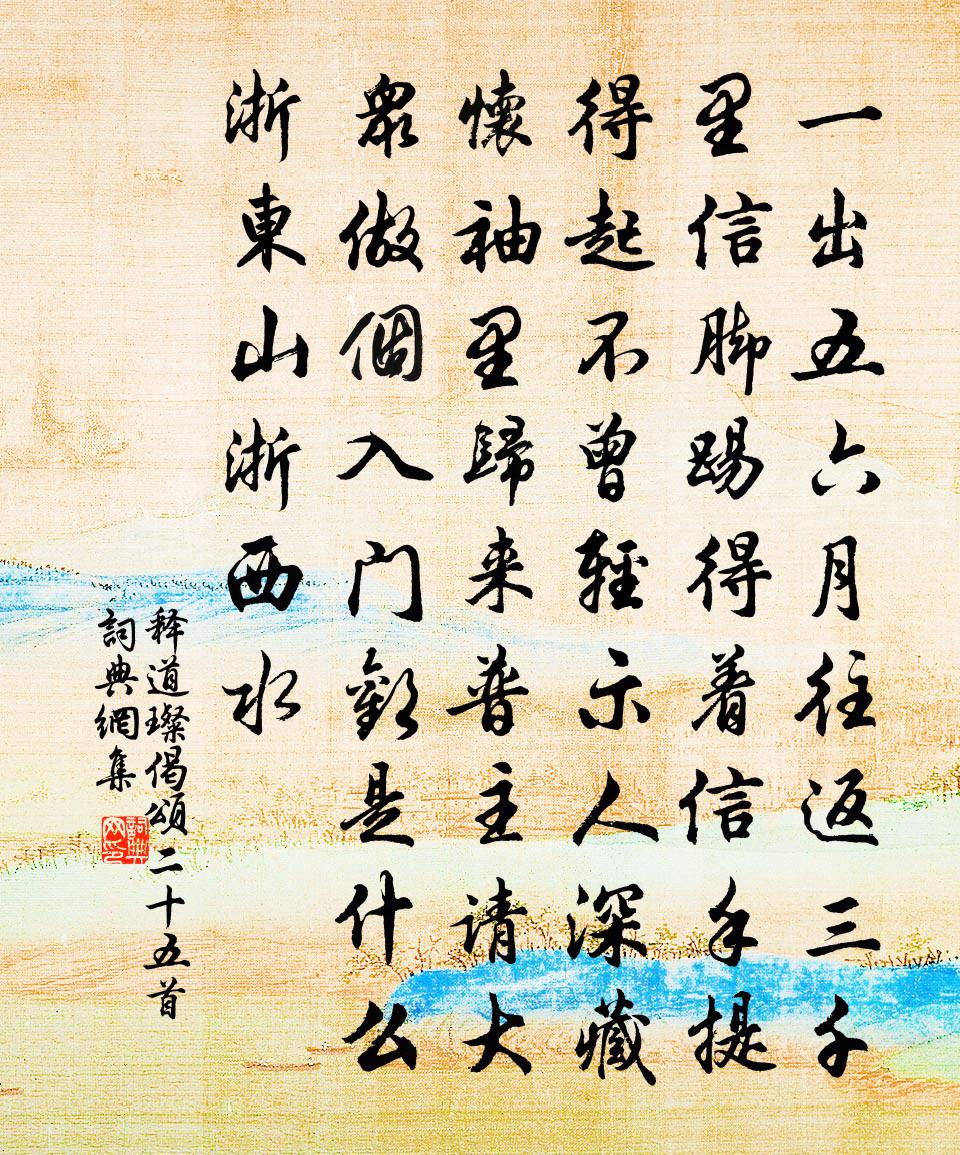 一出五六月往返三千
里信脚踢得着信手提
得起不曾轻示人深藏
懷袖里歸来普主请大
眾做個入门勘是什么
浙東山浙西水
释道璨偈頌二十五首
詞典網集
詞典网印